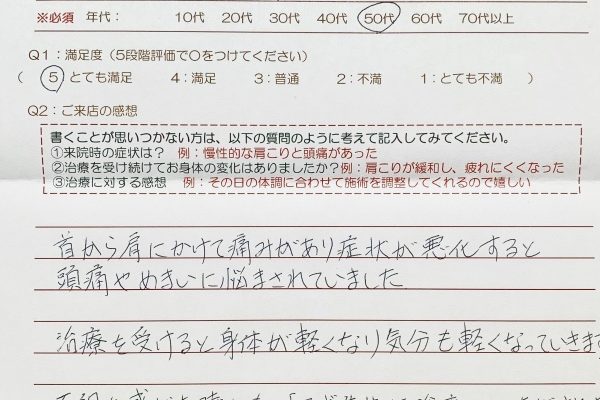 ※必須 年代： 10代 20代 30代 40代 50代 60代 70代以上
Q1：満足度（5段階評価で〇をつけてください）
（ 5 とても満足 4：満足 3：普通 2：不満 1：とても不満 ）
Q2：ご来店の感想
書くことが思いつかない方は、以下の質問のように考えて記入してみてください。
①来院時の症状は？ 例：慢性的な肩こりと頭痛があった
②治療を受け続けてお身体の変化はありましたか？例：肩こりが緩和し、疲れにくくなった
③治療に対する感想 例：その日の体調に合わせて施術を調整してくれるので嬉しい
首から肩にかけて痛みがあり症状が悪化すると
頭痛やめまいに悩まされていました
治療を受けると身体が軽くなり気分も軽くなっていきます